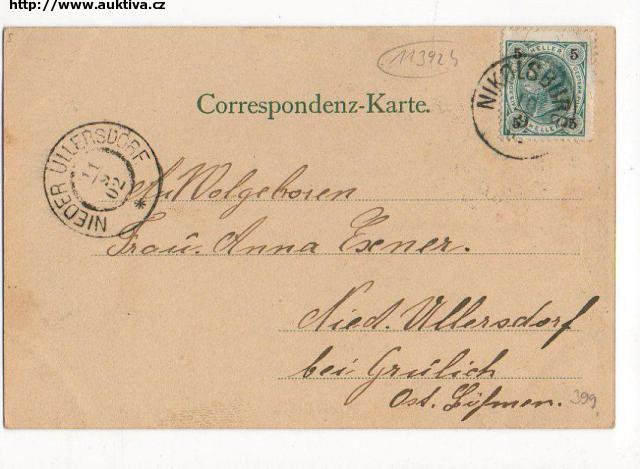 http://www.auktiva.cz
113924
Correspondenz-Karte.
5 HELLER 5
NIKOLSBURG
NIEDER ULLERSDORF
11 02
Wolgeboren
Frau. Anna Exner.
Nied. Ullersdorf
bei Grulich
Ost. Böhmen.
399